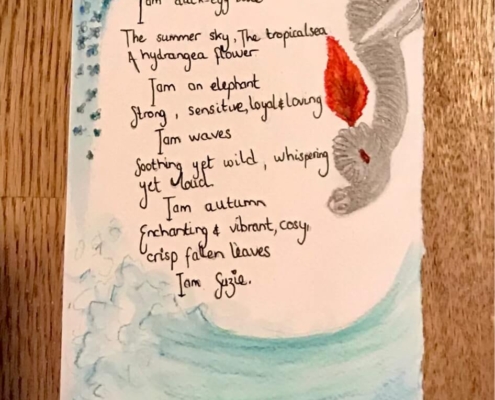 I am duck egg blue
The summer sky, The tropical sea
A hydrangea flower
I am an elephant
Strong, sensitive, loyal & loving
I am waves
Soothing yet wild, whispering
yet loud
I am autumn
Enchanting & vibrant, cosy,
crisp fallen leaves
I am Suzie.